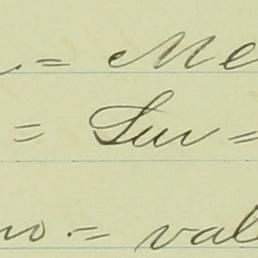 = Me
= Sur =
no. = val